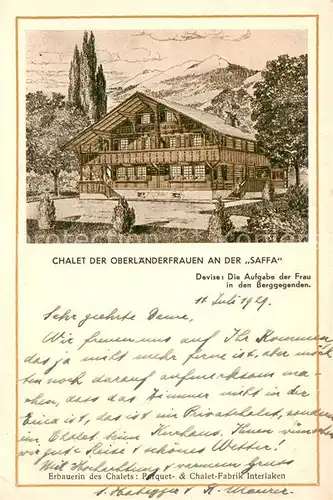 CHALET DER OBERLÄNDERFRAUEN AN DER „SAFFA"
Devise: Die Aufgabe der Frau
in den Berggegenden.
11. Juli 1929.
Sehr geehrte Dame,
Wir freuen uns auf Ihr Kommen,
das ja nicht mehr ferne ist, aber möch
ten noch darauf aufmerksam ma-
chen, dass das Zimmer nicht in der
Erica ist, das ist ein Privatchalet, sondern
ein Chalet beim Kurhaus. Ihnen wünschen
wir gute Reise & schönes Wetter!
Mit Hochachtung & warmem Gruss
Erbauerin des Chalets: Parquet- & Chalet-Fabrik Interlaken